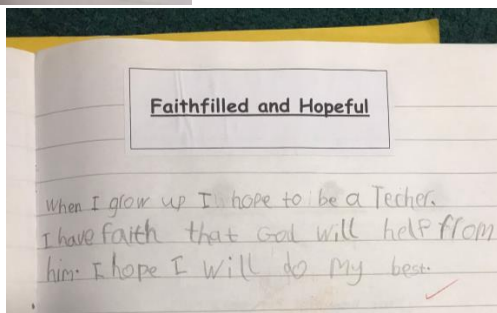 Faithfilled and Hopeful
When I grow up I hope to be a Techer.
I have faith that God will help from
him. I hope I will do my best.